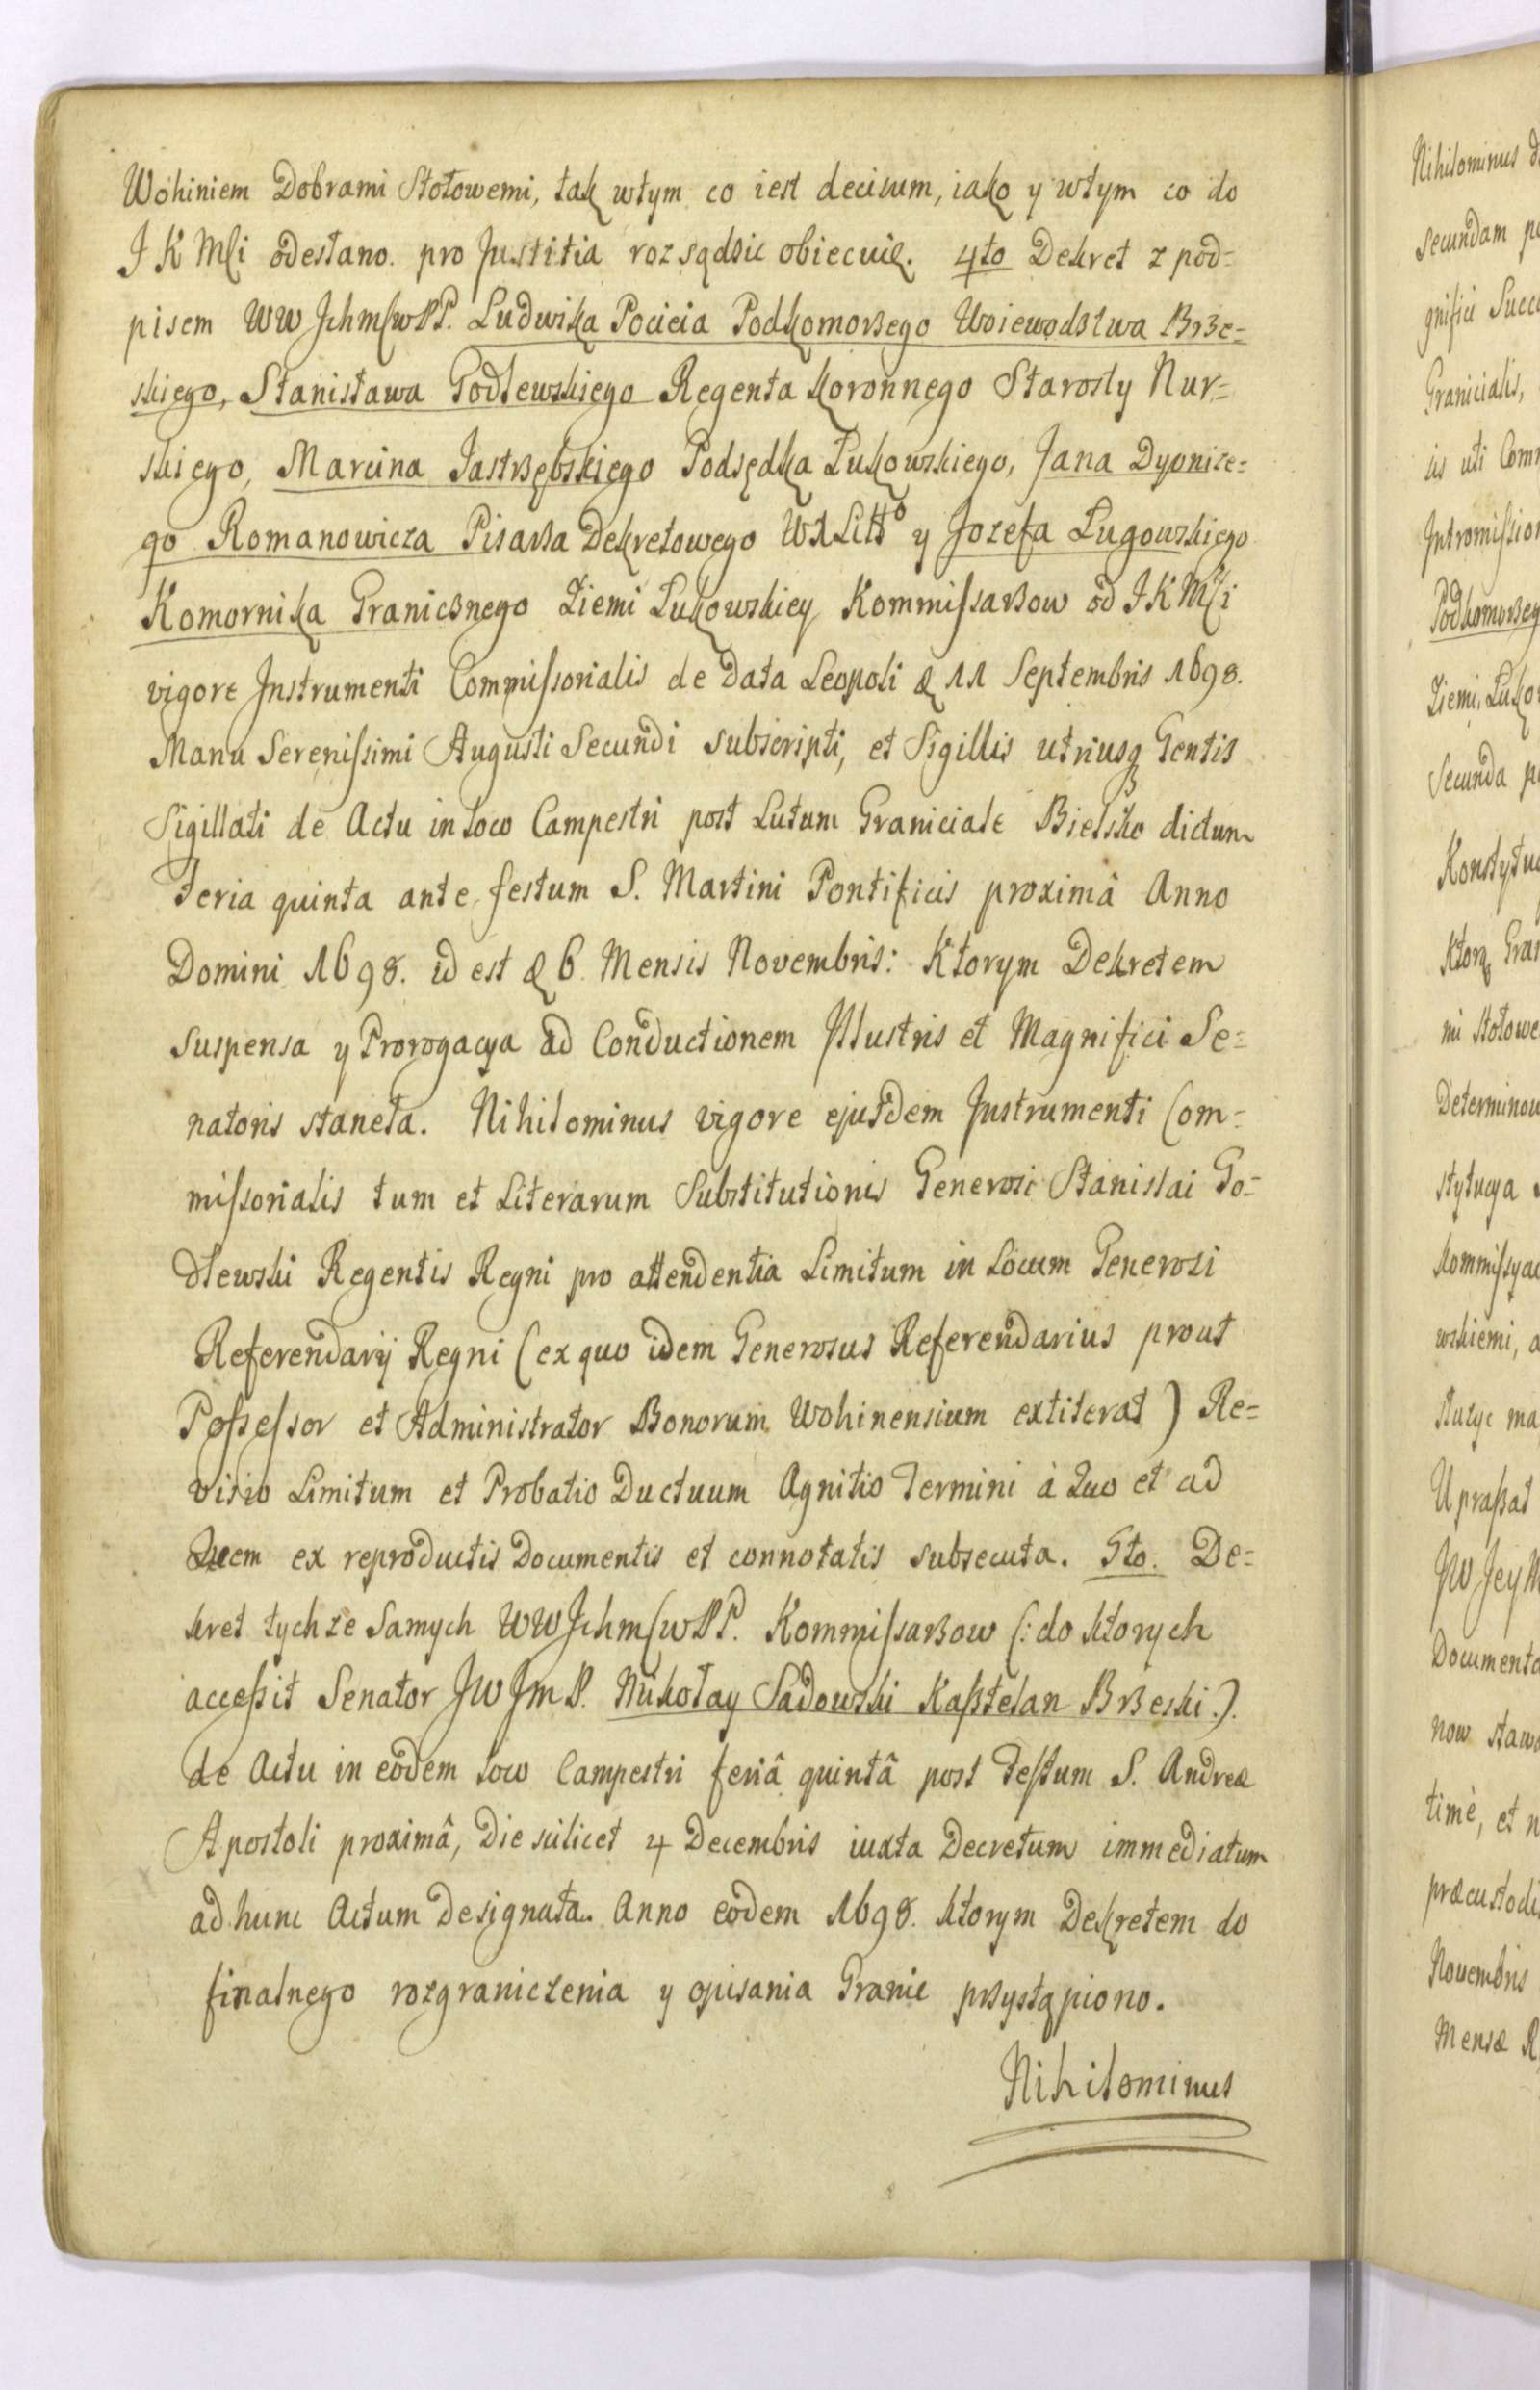 Wohiniem Dobrami Stołowemi, tak wtym co iest decisum, iako y wtym co do
J K Mſci odesłano. pro Justitia rozsądzic obiecuię. 4to Dekret z pod=
pisem WW Jchmſcw PP. Ludwika Pocieia Podkomorzego Woiewodstwa Brze=
skiego, Stanisława Godlewskiego Regenta koronnego Starosty Nur=
skiego, Marcina Jastrzębskiego Podsędka Łukowskiego, Jana Dyonize=
go Romanowicza Pisarza Dekretowego WXLittº y Jozefa Ługowskiego
Komornika Granicznego Ziemi Łukowskiey Kommiſsarzow od J K Mſci
vigore Instrumenti Commiſsorialis de Data Leopoli d 11 Septembris 1698.
Manu Sereniſsimi Augusti Secundi subscripti, et Sigillis utriusq Gentis
Sigillati de Actu in loco Campestri post Lutum Graniciale Bielsko dictum
feria quinta ante festum S. Martini Pontificis proximâ Anno
Domini 1698. id est d 6 Mensis Novembris: Ktorym Dekretem
suspensa y Prorogacya ad Conductionem Jllustris et Magnifici Se=
natoris staneła. Nihilominus vigore ejusdem Jnstrumenti Com=
miſsorialis tum et Literarum Substitutionis Generosi Stanislai Go=
dlewski Regentis Regni pro attendentia Limitum in Locum Generosi
Referendarÿ Regni (ex quo idem Generosus Referendarius prout
Poſseſsor et Administrator Bonorum Wohinensium extiterat) Re=
visio Limitum et Probatio Ductuum Agnitio Termini à Quo et ad
Quem ex reproductis Documentis et connotatis subsecuta. 5to. De=
kret tychze Samych WWJchmſcwPP. Kommiſsarzow (: do ktorych
acceſsit Senator JWJmP. Mikołay Sadowski Kasztelan Brzeski :).
de Actu in eodem loco Campestri feriâ quintâ post Festum S. Andreæ
Apostoli proximâ, Die scilicet 4 Decembris iuxta Decretum immediatum
ad hunc Actum Designata. Anno eodem 1698. ktorym Dekretem do
finalnego rozgraniczenia y opisania Granic przystąpiono.
Nihilominus
Nihilominus
secundam
gnifici Succ
Granicialis,
iis uti Com
Jntromiſsion
Podkomorzeg
Ziemi Łuko
Secunda
Konstytu
Ktorą Gran
mi Stołowe
Determinow
stytucya
Kommiſsya
wskiemi, a
służyc ma
Upraszał
JW Jey M
Documenta
now stawa
timè, et n
præcustodi
Novembris
Mensæ R